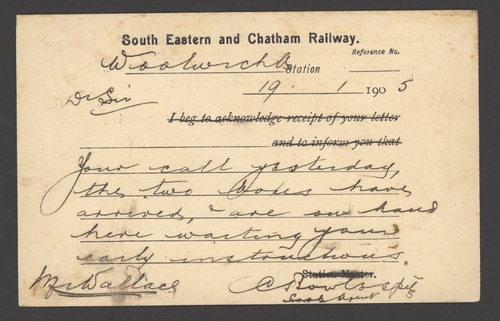 South Eastern and Chatham Railway.
Reference No.
Woolwich Station
19. 1 1905
Dr Sir
I beg to acknowledge receipt of your letter
and to inform you that
Your call yesterday,
the two have
arrived, & are on hand
here waiting your
early instructions.
Station Master.
Mr Wallace
Agent